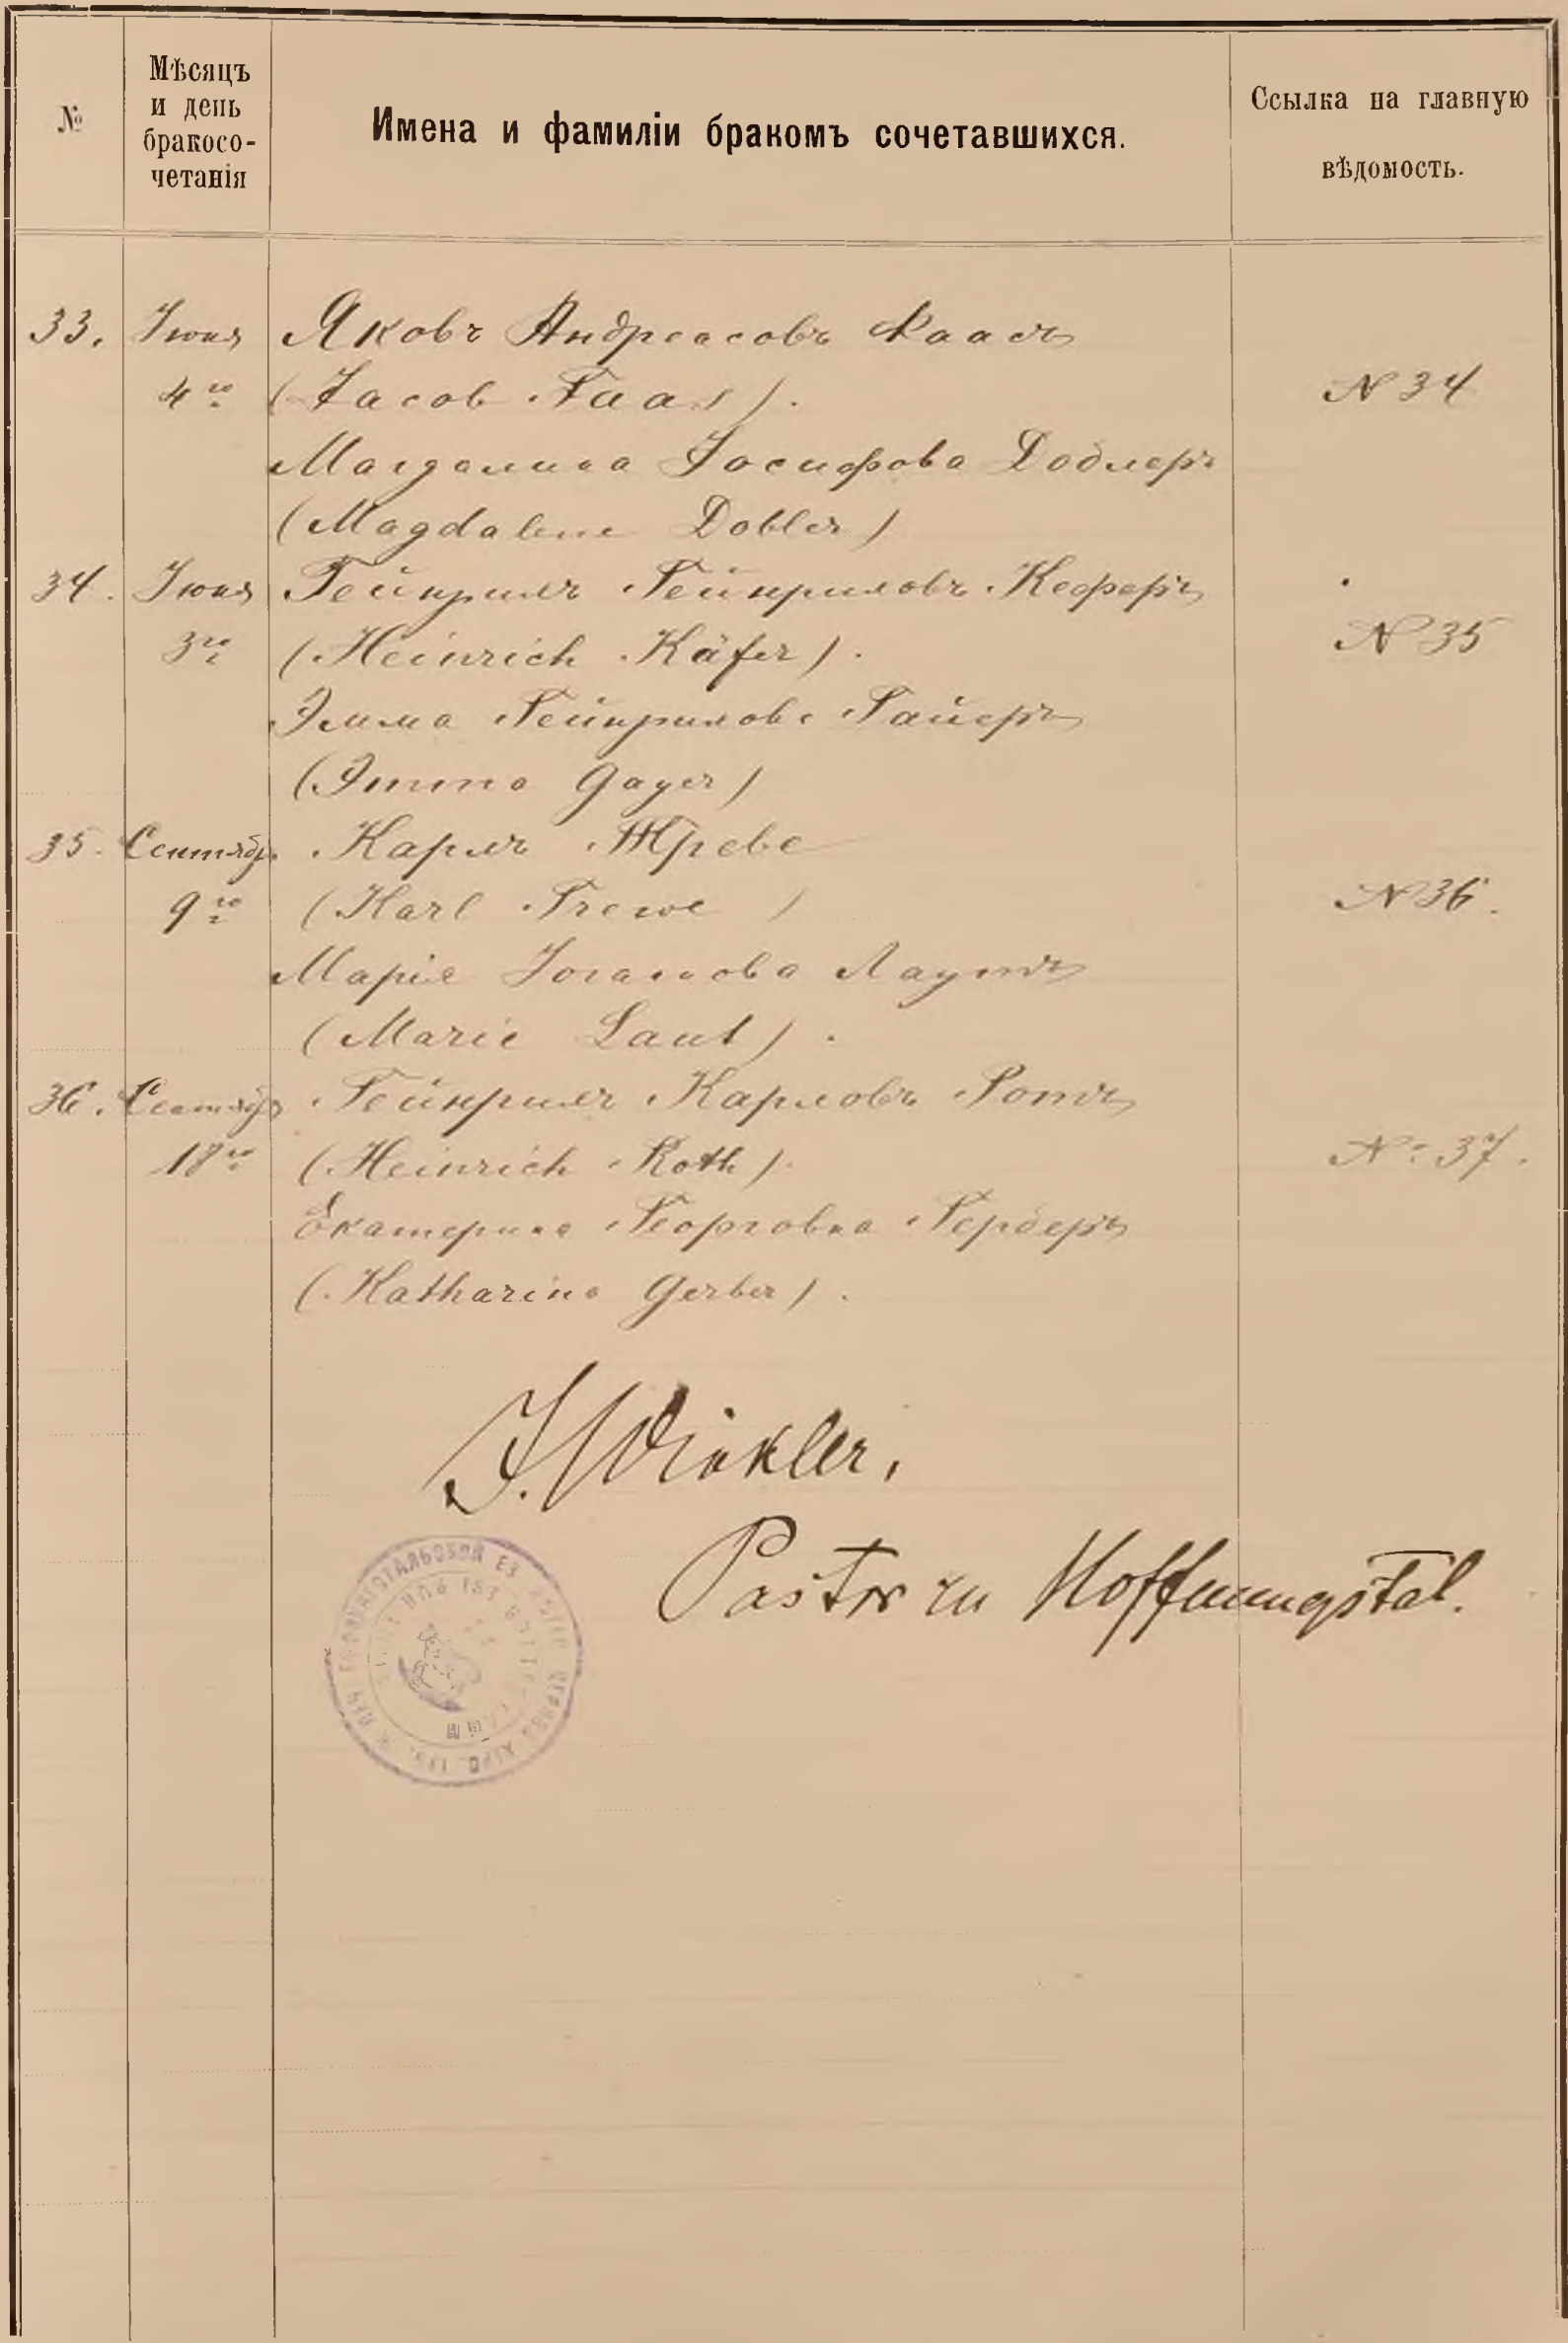 №
Мѣсяцъ
и день
бракосо-
четанія
Имена и фамиліи бракомъ сочетавшихся.
Ссылка на главную
вѣдомость.
33. Іюня Яковъ Андреасовъ
4го (Jacob Faas). N 34
Магдалина Іосифова Доблеръ
(Magdalene Dobler)
34. Іюня Гейнрихъ Гейнриховъ Кеферъ
3го (Heinrich Käfer). N 35
Эмма Гейнрихова Гайеръ
(Emma Gayer)
35. Сентябр. Карлъ Треве
9го (Karl Trewe) N 36.
Марія Іоганнова Лаутъ
(Marie Laut).
36. Сентябр Гейнрихъ Карловъ Ротъ
18го (Heinrich Roth). № 37.
Екатерина Георговна Герберъ
(Katharina Gerber).
J. Winkler,
Pastor zu Hoffnungstal.